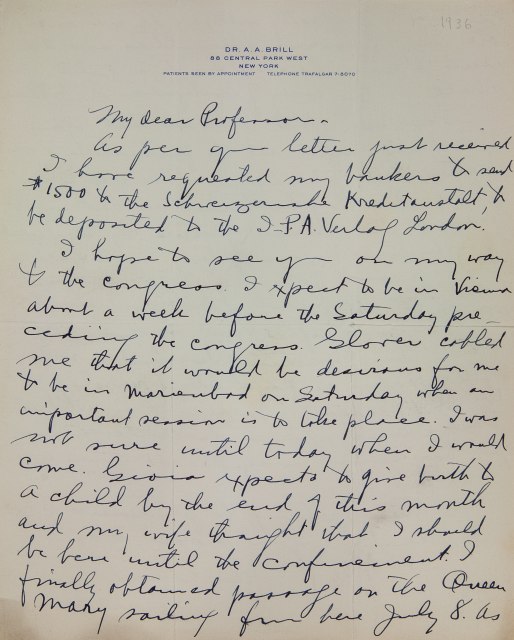 1936
DR. A. A. BRILL
88 CENTRAL PARK WEST
NEW YORK
PATIENTS SEEN BY APPOINTMENT TELEPHONE TRAFALGAR 7-8070
My dear Professor-
As per your letter just received
I have requested my bankers to send
$1500 to the Schweizerische Kreditanstalt, to
be deposited to the I.P.A. Verlag London.
I hope to see you on my way
to the congress. I xpect to be in Vienna
about a week before the Saturday pre-
ceding the congress. Glover cabled
me that it would be desirous for me
to be in Marienbad on Saturday when an
important session is to take place. I was
not sure until today when I would
come. Gioia xpects to give birth to
a child by the end of this month
and my wife thought that I should
be here until the confinement. I
finally obtained passage on the Queen
Mary sailing from here July 8. As